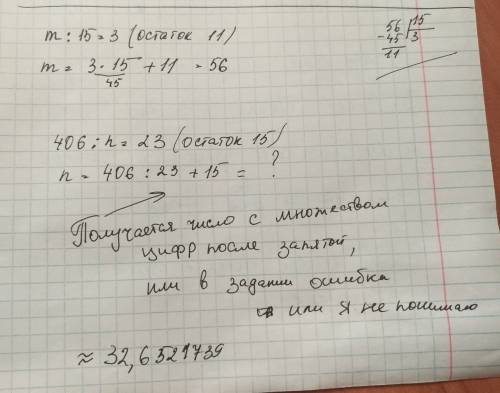 m : 15 = 3 (остаток 11)
m = 3 · 15 + 11 = 56
45
56 15
- 45 3
11
406 : n = 23 (остаток 15)
n = 406 : 23 + 15 = ?
Получается число с множеством
цифр после запятой,
или в задании ошибка
или я не понимаю
≈ 32,6521739